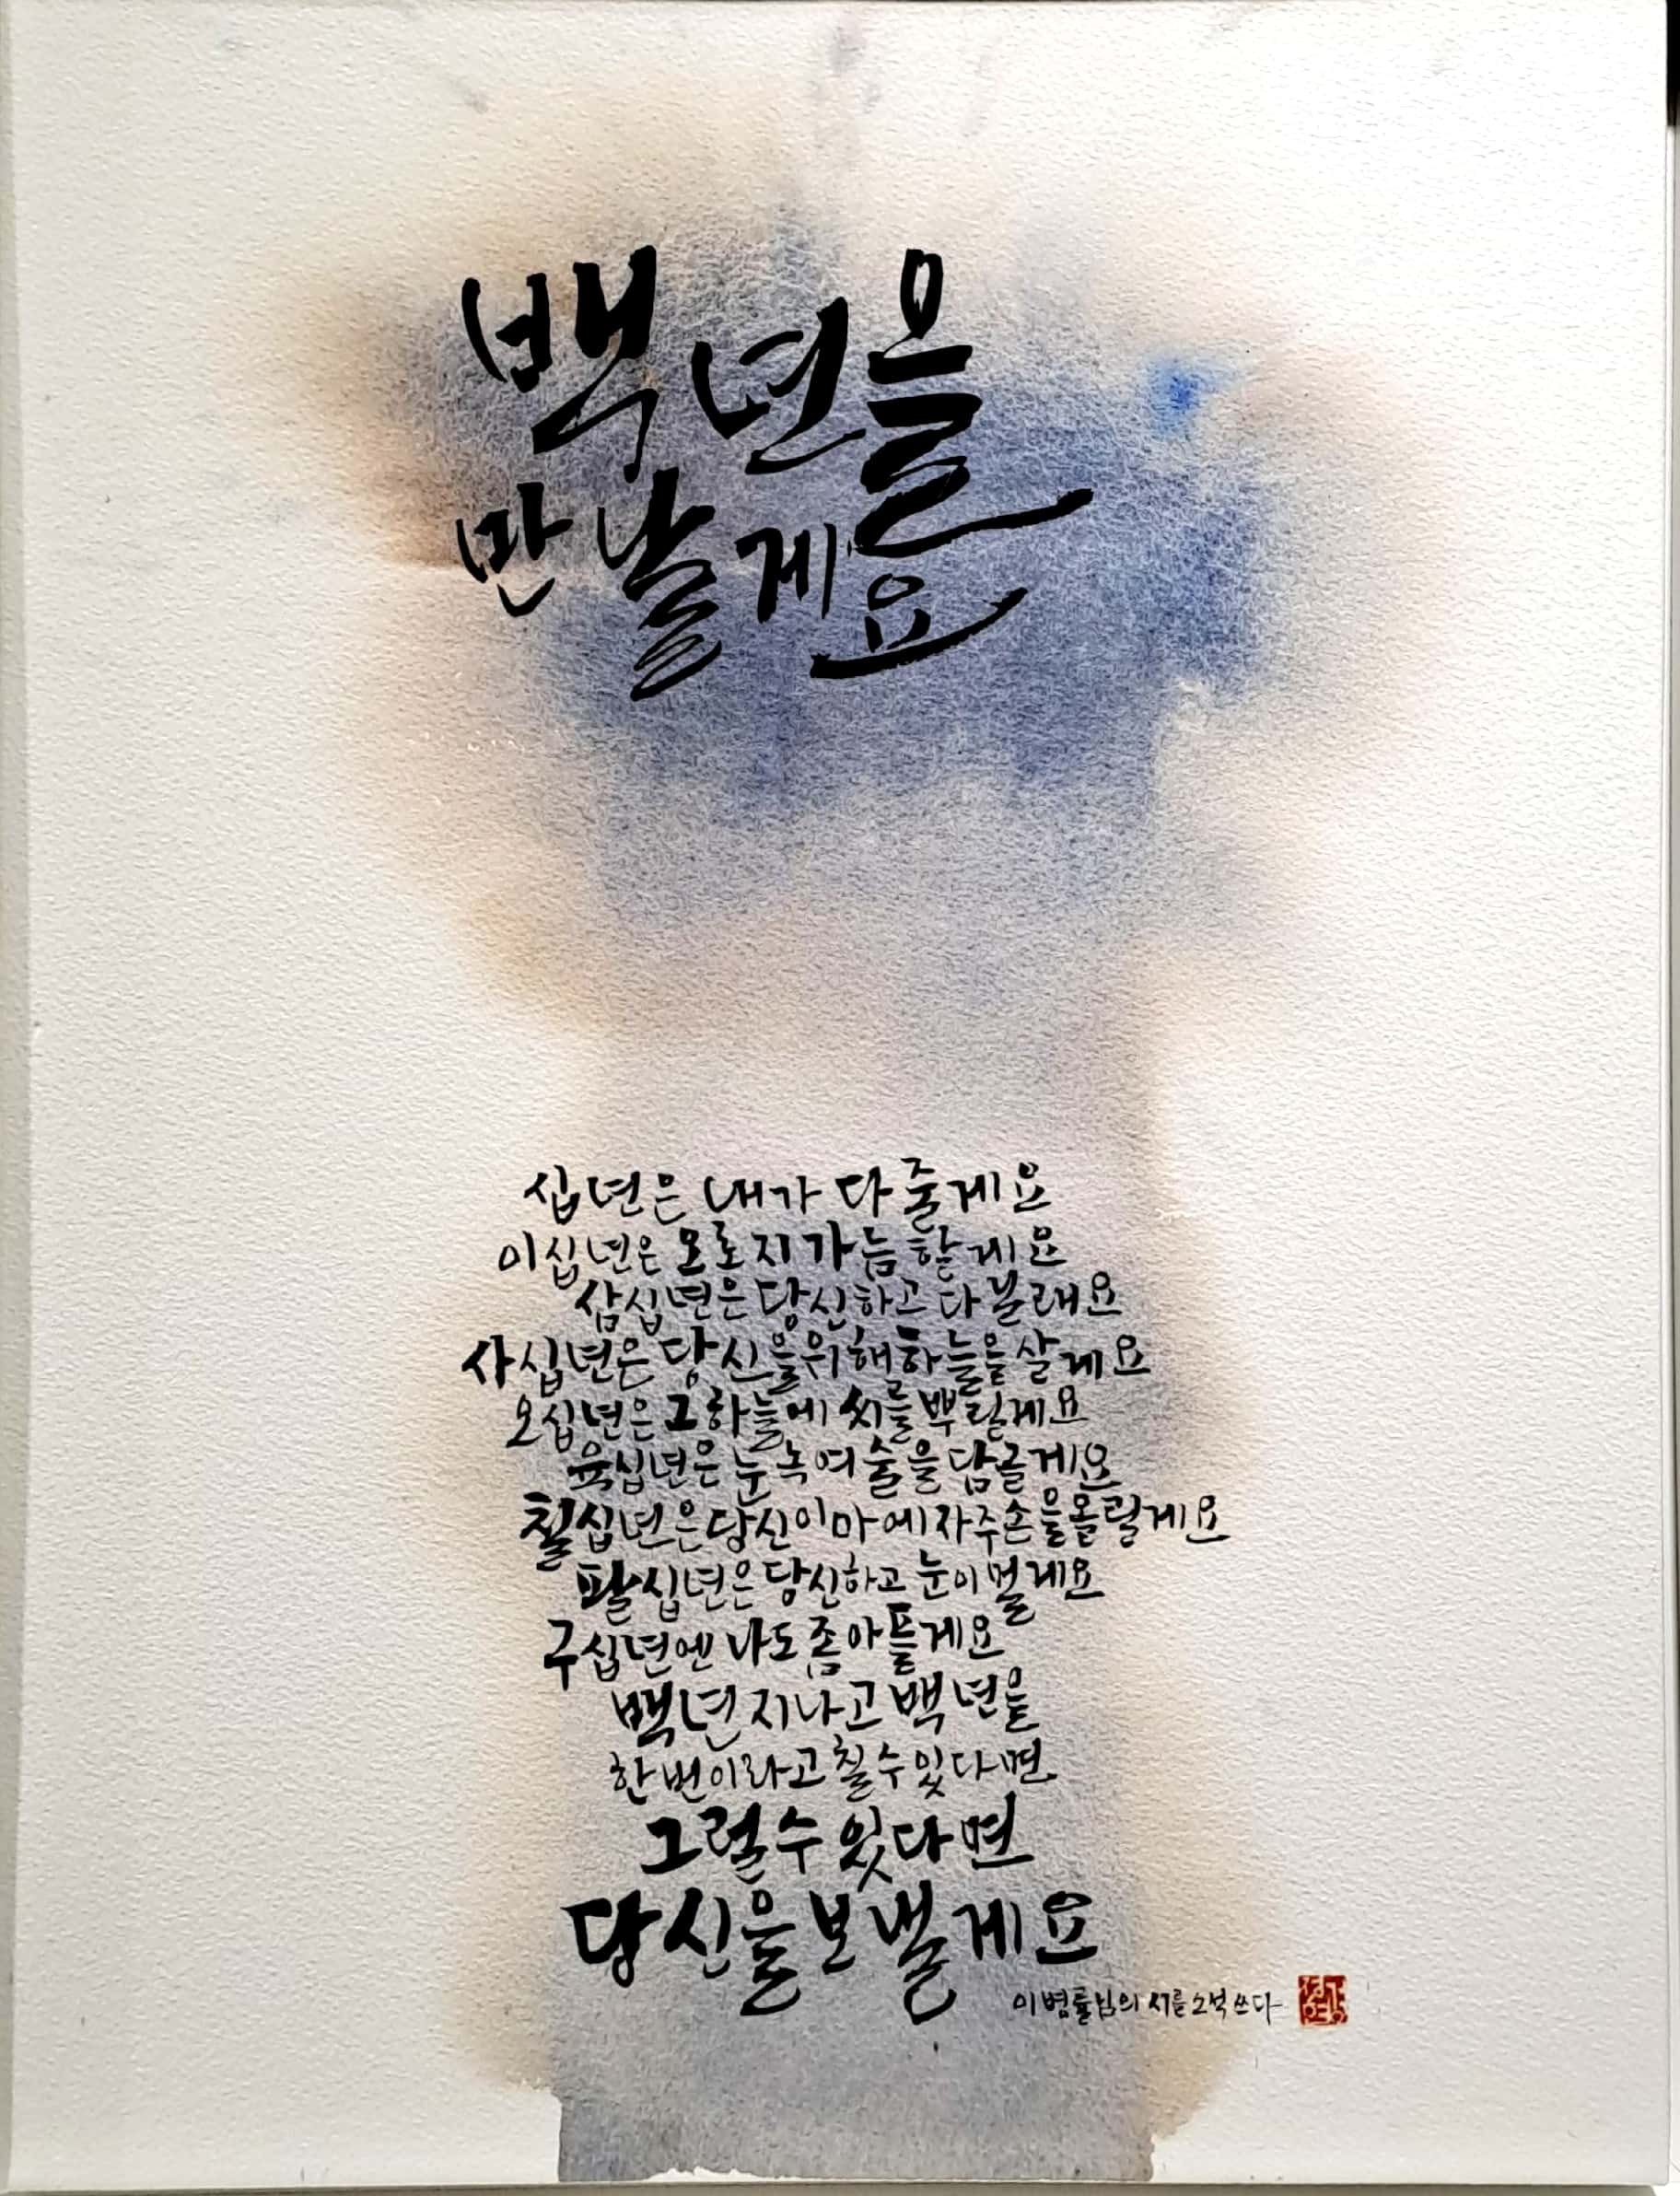 백년을
만날게요
십년은 내가 다 줄게요
이십년은 오로지 가늠할게요
삼십년은 당신하고 다 볼래요
사십년은 당신을 위해 하늘을 살게요
오십년은 그 하늘에 씨를 뿌릴게요
육십년은 눈 녹여 술을 담글게요
칠십년은 당신 이마에 자주 손을 올릴게요
팔십년은 당신하고 눈이 멀게요
구십년엔 나도 좀 아플게요
백년 지나고 백년을
한번이라고 칠 수 있다면
그럴 수 있다면
당신을 보낼게요
이병률님의 시를 소석 쓰다